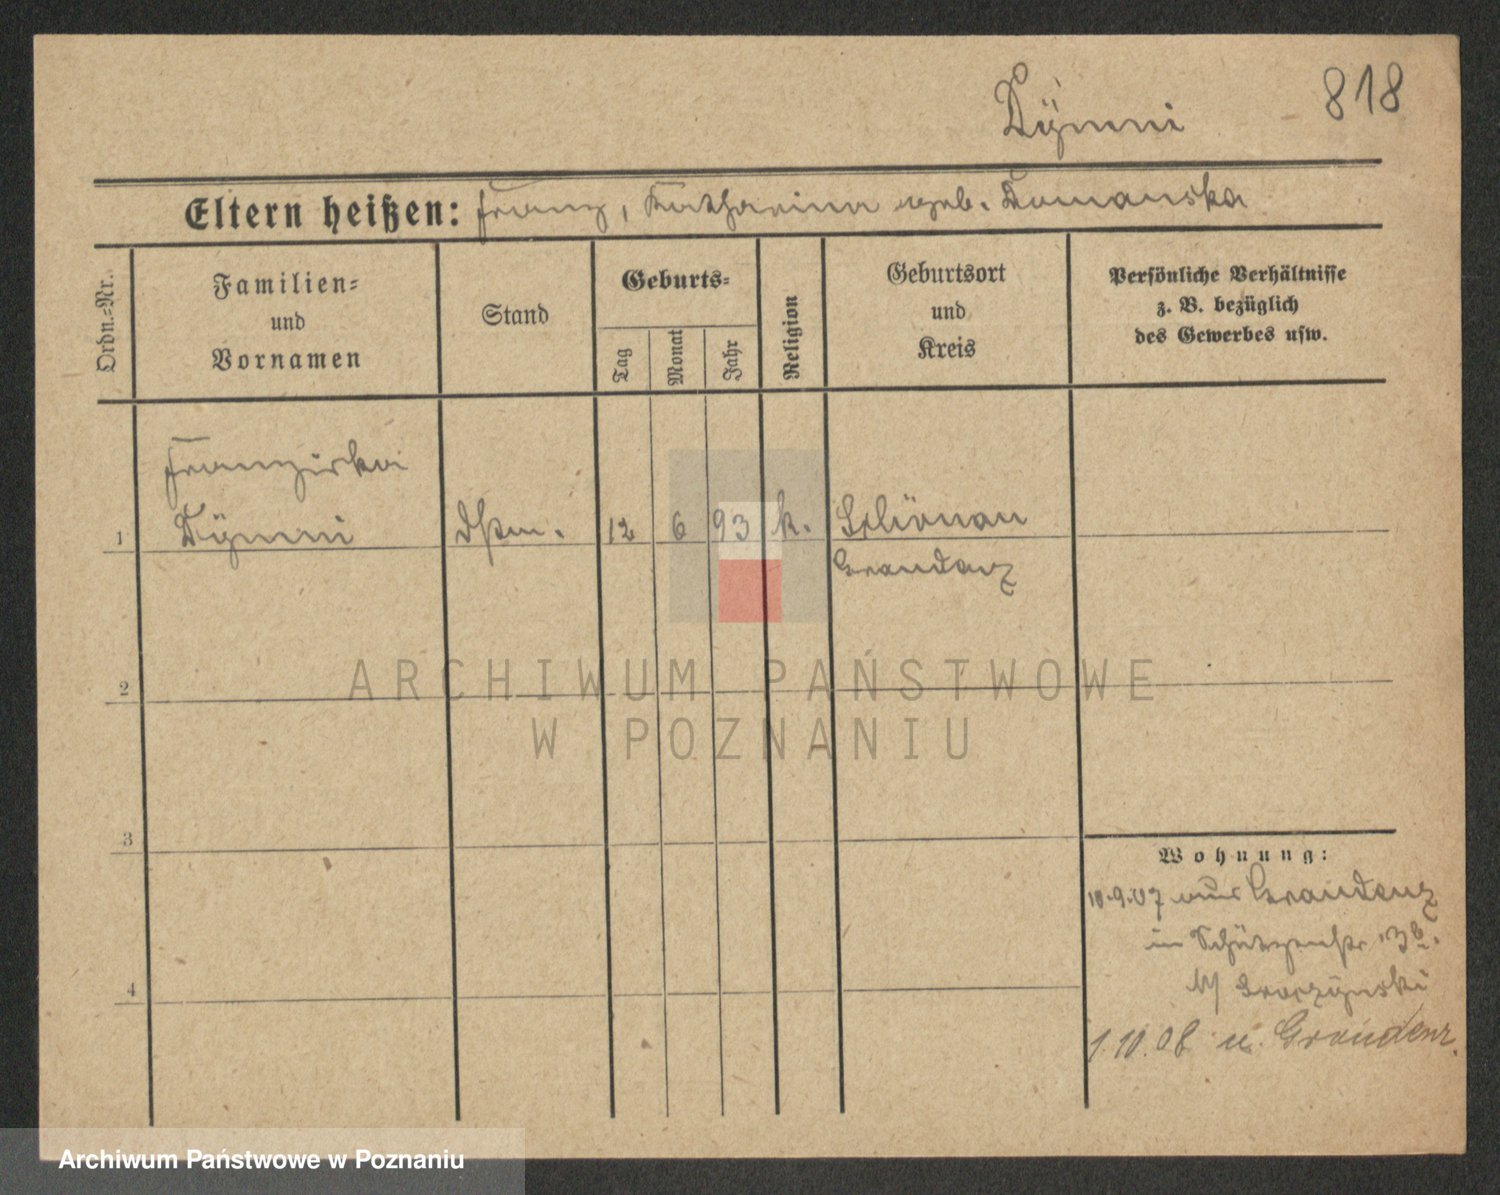 818
Dÿmni
Eltern heißen: Franz, Katharina geb. Domanska
Ordn.=Nr.
Familien=
und
Vornamen
Stand
Geburts=
Tag
Monat
Jahr
Religion
Geburtsort
und
Kreis
Persönliche Verhältnisse
z. B. bezüglich
des Gewerbes usw.
Franziska
1 Dÿmni dstm. 12 6 93 k. Schönau
Graudenz
2
3
4
Wohnung:
10.9.07 aus Graudenz
in Schützenstr
1.10.08 n. Graudenz.
ARCHIWUM PAŃSTWOWE
W POZNANIU
Archiwum Państwowe w Poznaniu